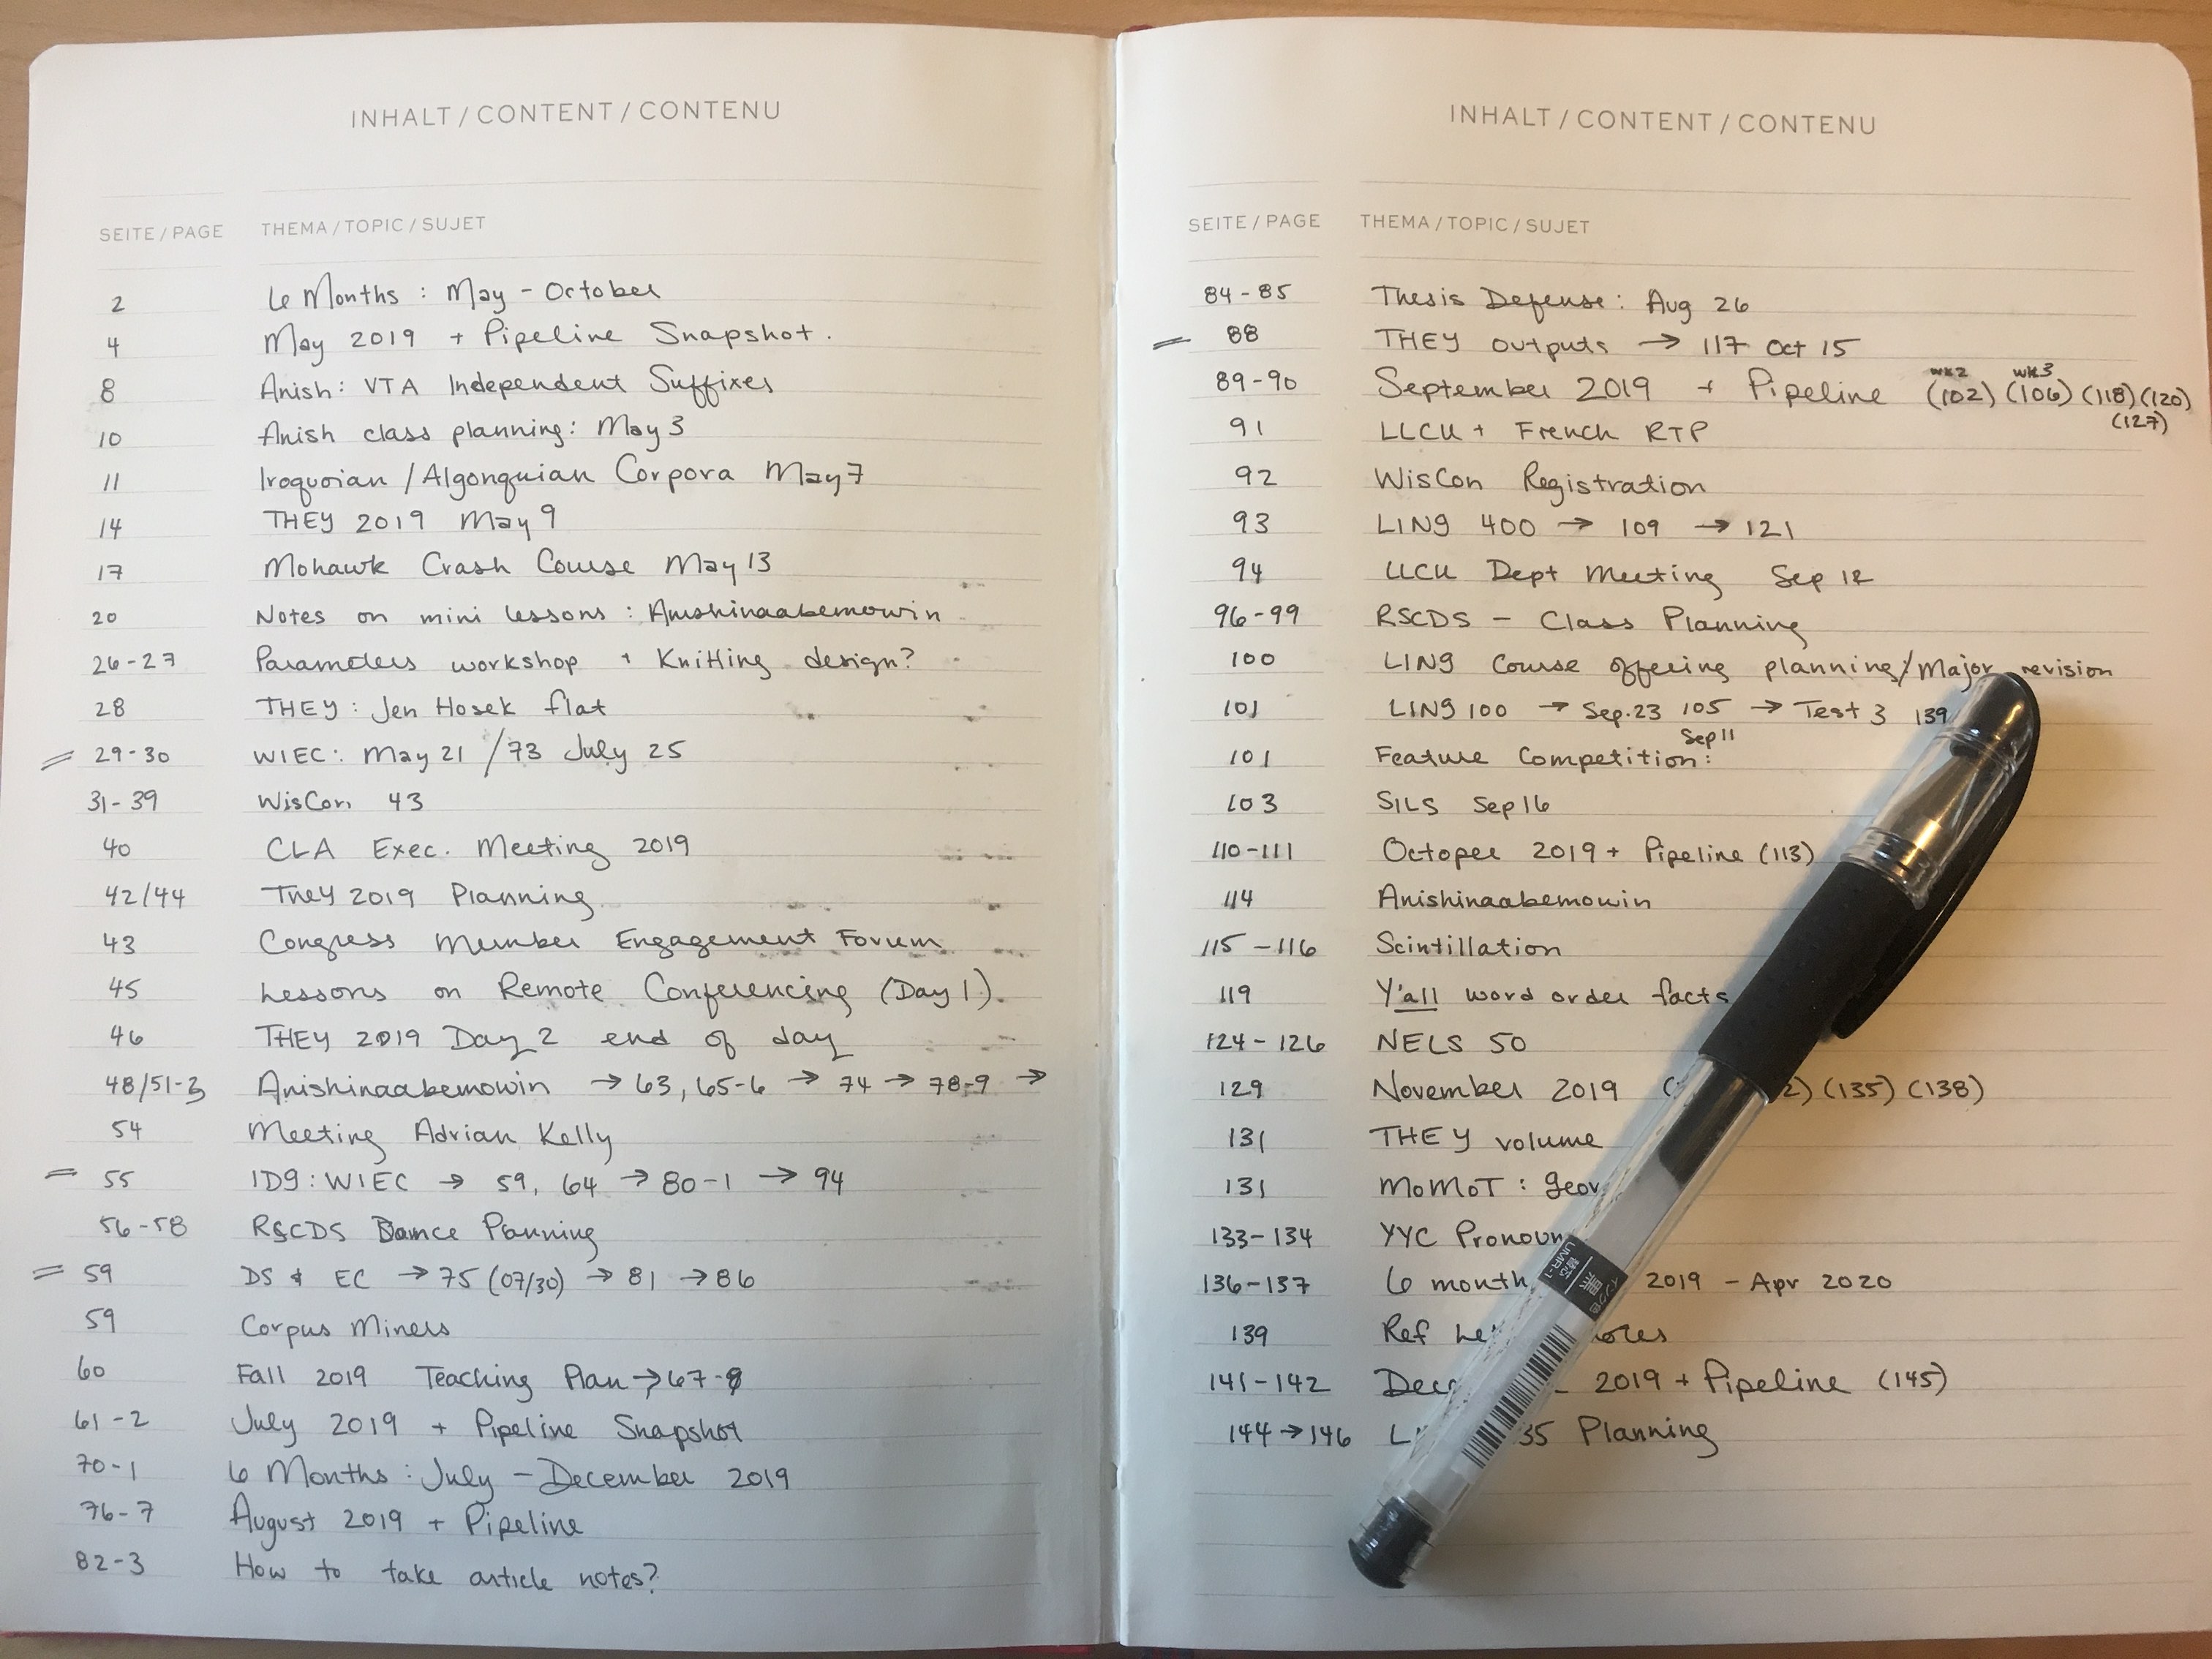 INHALT / CONTENT / CONTENU
SEITE / PAGE THEMA / TOPIC / SUJET
2 6 Months : May - October
4 May 2019 + Pipeline Snapshot.
8 Anish: VTA Independent Suffixes
10 Anish class planning: May 3
11 Iroquoian / Algonquian Corpora May 7
14 THEY 2019 May 9
17 Mohawk Crash Course May 13
20 Notes on mini lessons : Anishinaabemowin
26-27 Parameters workshop + Knitting design?
28 THEY : Jen Hosek flat
= 29-30 WIEC: May 21 / 73 July 25
31-39 WisCon 43
40 CLA Exec. Meeting 2019
42/44 They 2019 Planning
43 Congress Member Engagement Forum
45 Lessons on Remote Conferencing (Day 1).
46 THEY 2019 Day 2 end of day
48/51-3 Anishinaabemowin → 63, 65-6 → 74 → 78-9 →
54 Meeting Adrian Kelly
= 55 IDG: WIEC → 59, 64 → 80-1 → 94
56-58 RSCDS Dance Planning
= 59 DS & EC → 75 (07/30) → 81 → 86
59 Corpus Miners
60 Fall 2019 Teaching Plan → 67-8
61-2 July 2019 + Pipeline Snapshot
70-1 6 Months : July - December 2019
76-7 August 2019 + Pipeline
82-3 How to take article notes?
INHALT / CONTENT / CONTENU
SEITE / PAGE THEMA / TOPIC / SUJET
84-85 Thesis Defense: Aug 26
= 88 THEY outputs → 117 Oct 15
wk2 wk3
89-90 September 2019 + Pipeline (102) (106) (118) (120)
(127)
91 LLCU + French RTP
92 WisCon Registration
93 LING 400 → 109 → 121
94 LLCU Dept Meeting Sep 12
96-99 RSCDS - Class Planning
100 LING Course offering planning / Major revision
101 LING 100 → Sep. 23 105 → Test 3 139
Sep 11
101 Feature Competition:
103 SILS Sep 16
110-111 October 2019 + Pipeline (113)
114 Anishinaabemowin
115-116 Scintillation
119 Y'all word order facts
124-126 NELS 50
129 November 2019 (135) (138)
131 THEY volume
131 MoMOT :
133-134 YYC
136-137 6 2019 - Apr 2020
139 Ref
141-142 2019 + Pipeline (145)
144 → 146 Planning
UMR-1